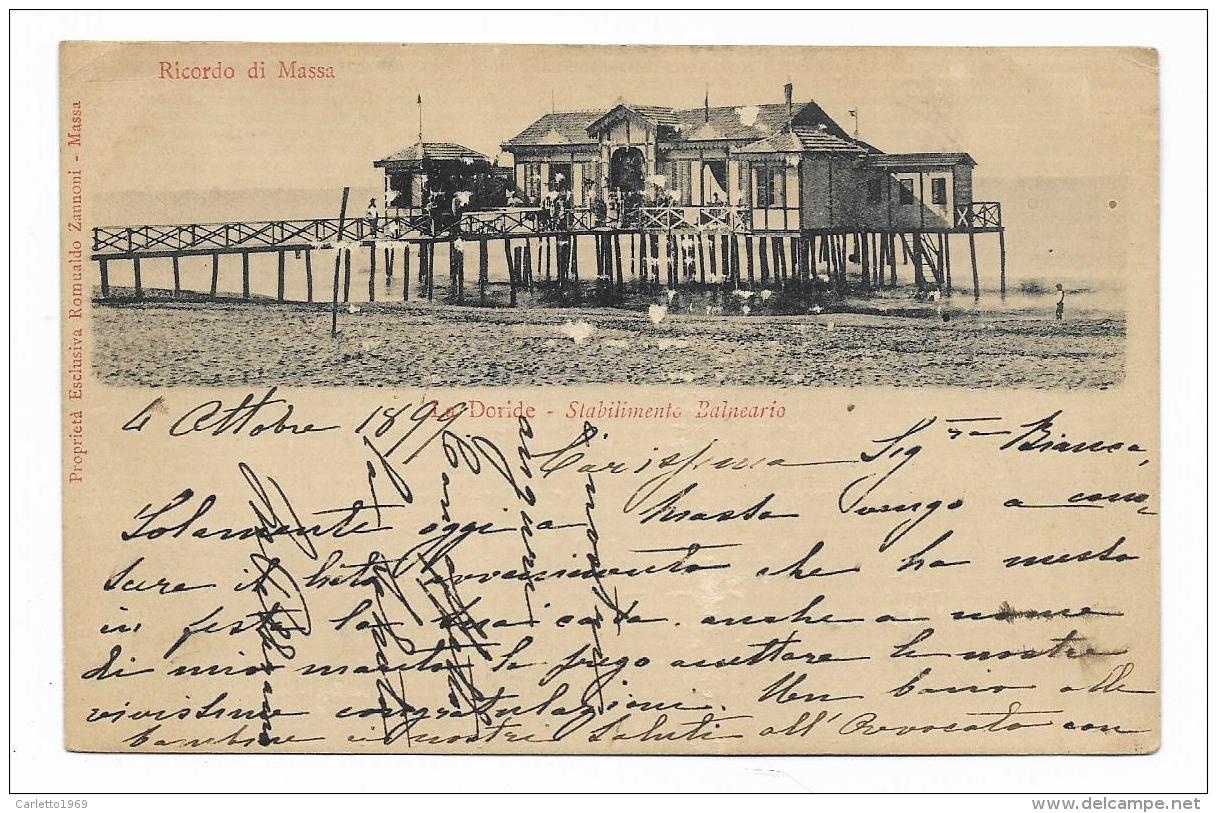 Ricordo di Massa
Proprietà Esclusiva Romualdo Zannoni - Massa
La Doride - Stabilimento Balneario
4 Ottobre 1899
Carissima Sig.ra Bianca,
Solamente oggi a Massa vengo a cono=
scere il lieto avvenimento che ha messo
in festa la sua casa. anche a nome
di mio marito la prego accettare le nostre
vivissime congratulazioni. Un bacio alle
bambine i nostri saluti all'Avvocato con
auguri
Carletto1969
delcampe.net